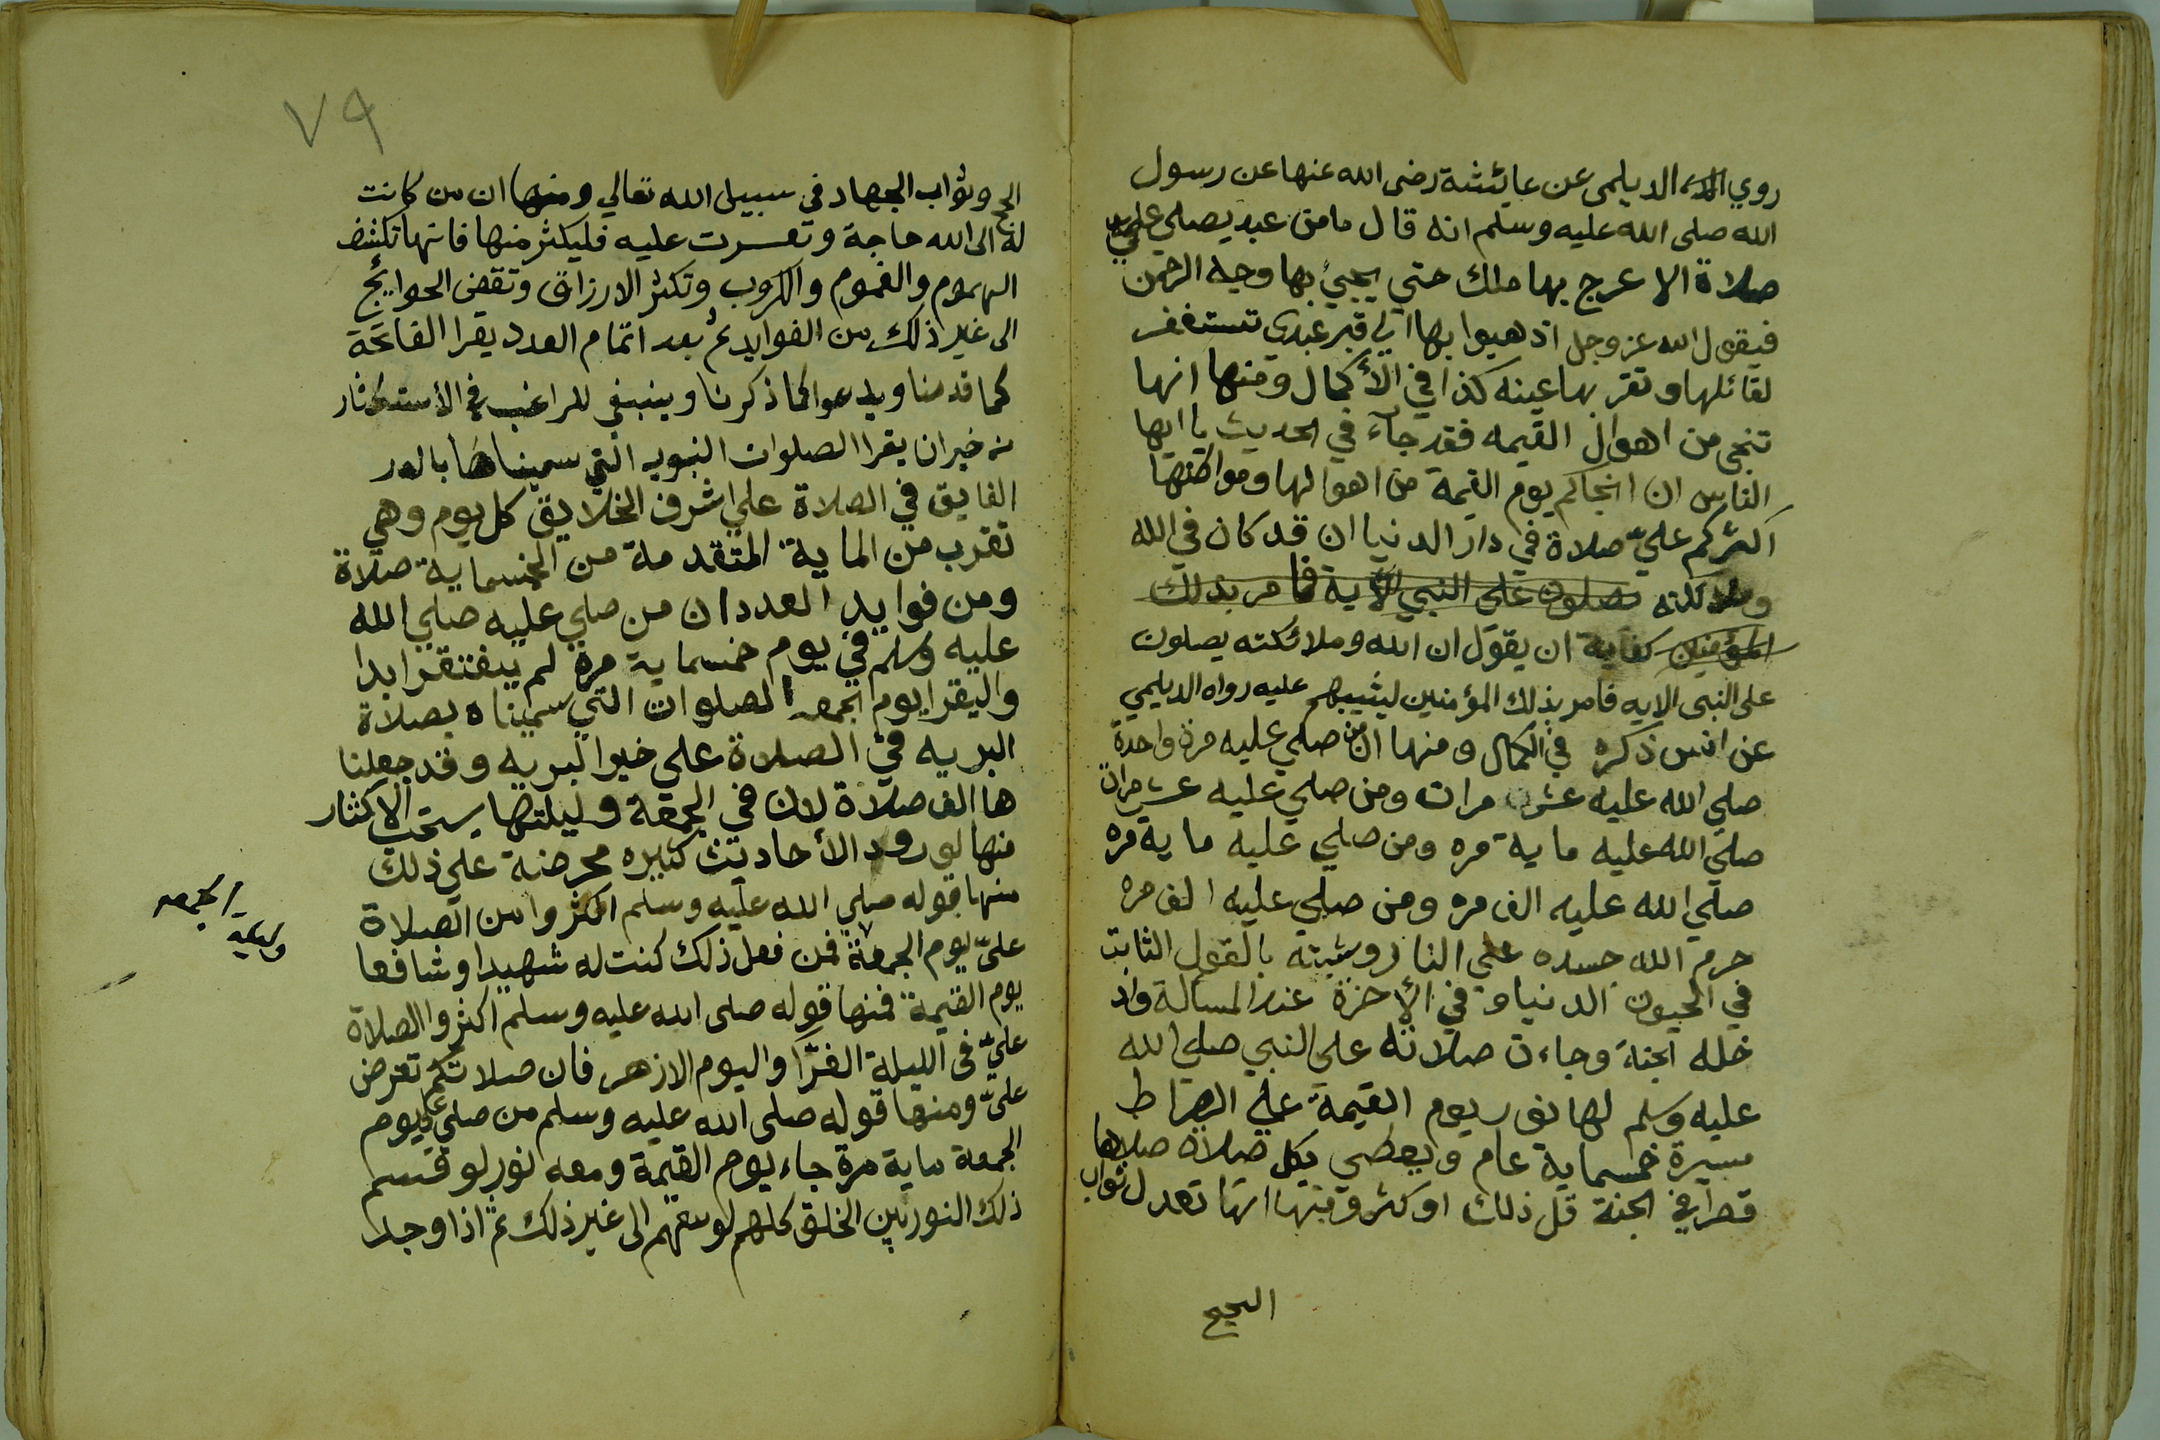 روي الديلمي عن عايشة رضى الله عنها عن رسول
الله صلى الله عليه وسلم انه قال ما من عبد يصلي علي
صلاة الا عرج بها ملك حتي يجيئ بها وجه الرحمن
فيقول الله عز وجل اذهبوا بها الي قبر عبدى تستغفر
لقائلها وتقر بها عينه كذا في الأكمال ومنها انها
تنجى من اهوال القيمه فقد جآء في الحديث يا ايها
الناس ان انجاكم يوم القيمة من اهوالها ومواطنها
اكثركم عليّ صلاة في دار الدنيا ان قد كان في الله
وملائكته يصلون على النبي الآية فامر بذلك
المؤمنين كفاية ان يقول ان الله وملائكته يصلون
على النبى الايه فامر بذلك المؤمنين ليثيبهم عليه رواه الديلمي
عن انس ذكره في الكمال ومنها ان من صلي عليه مرة واحدة
صلي الله عليه عشر مرات ومن صلي عليه عشر مرات
صلي الله عليه ماية مره ومن صلي عليه ماية مره
صلي الله عليه الف مره ومن صلي عليه الف مره
حرم الله جسده علي النار وثبته بالقول الثابت
في الحيوة الدنيا وفي الأخرة عند المسالة واد
خله الجنة وجاءت صلاته على النبي صلي الله
عليه وسلم لها نور يوم القيمة علي الصراط
مسيرة خمسماية عام ويعطي بكل صلاة صلاها
قصرا في الجنة قل ذلك او كثر ومنها انها تعدل ثواب
الحج
٧٩
الحج وثواب الجهاد في سبيل الله تعالي ومنها ان من كانت
له الى الله حاجة وتعسرت عليه فليكثر منها فانها تكشف
الهموم والغموم والكروب وتكثر الارزاق وتقضى الحوايج
الى غير ذلك من الفوايد ثم بعد اتمام العدد يقرا الفاتحة
كما قدمنا ويدعوا كما ذكرنا وينبغي للراغب في الأستكثار
من خير ان يقرا الصلوات النبويه التي سميناها بالدر
الفايق في الصلاة علي اشرف الخلايق كل يوم وهي
تقرب من الماية المتقدمة من الخمسماية صلاة
ومن فوايد العدد ان من صلي عليه صلي الله
عليه وسلم في يوم خمسماية مرة لم يفتقر ابدا
واليقرا يوم الجمعه الصلوات التي سميناه بصلاة
البريه في الصلاة على خير البريه وقد جعلنا
ها الف صلاة لان في الجمعة وليلتها يستحب الاكثار
منها لورود الأحاديث كثيره محرضة علي ذلك
منها قوله صلي الله عليه وسلم اكثروا من الصلاة
عليّ يوم الجمعة فمن فعل ذلك كنت له شهيدا وشافعا
وليلة الجمعه
يوم القيمة فمنها قوله صلى الله عليه وسلم اكثروا الصلاة
عليّ في الليلة الغرّا واليوم الازهر فان صلاتكم تعرض
عليّ ومنها قوله صلى الله عليه وسلم من صلي علي يوم
الجمعة ماية مرة جاء يوم القيمة ومعه نور لو قسم
ذلك النور بين الخلق كلهم لوسعهم الى غير ذلك ثم اذا وجد